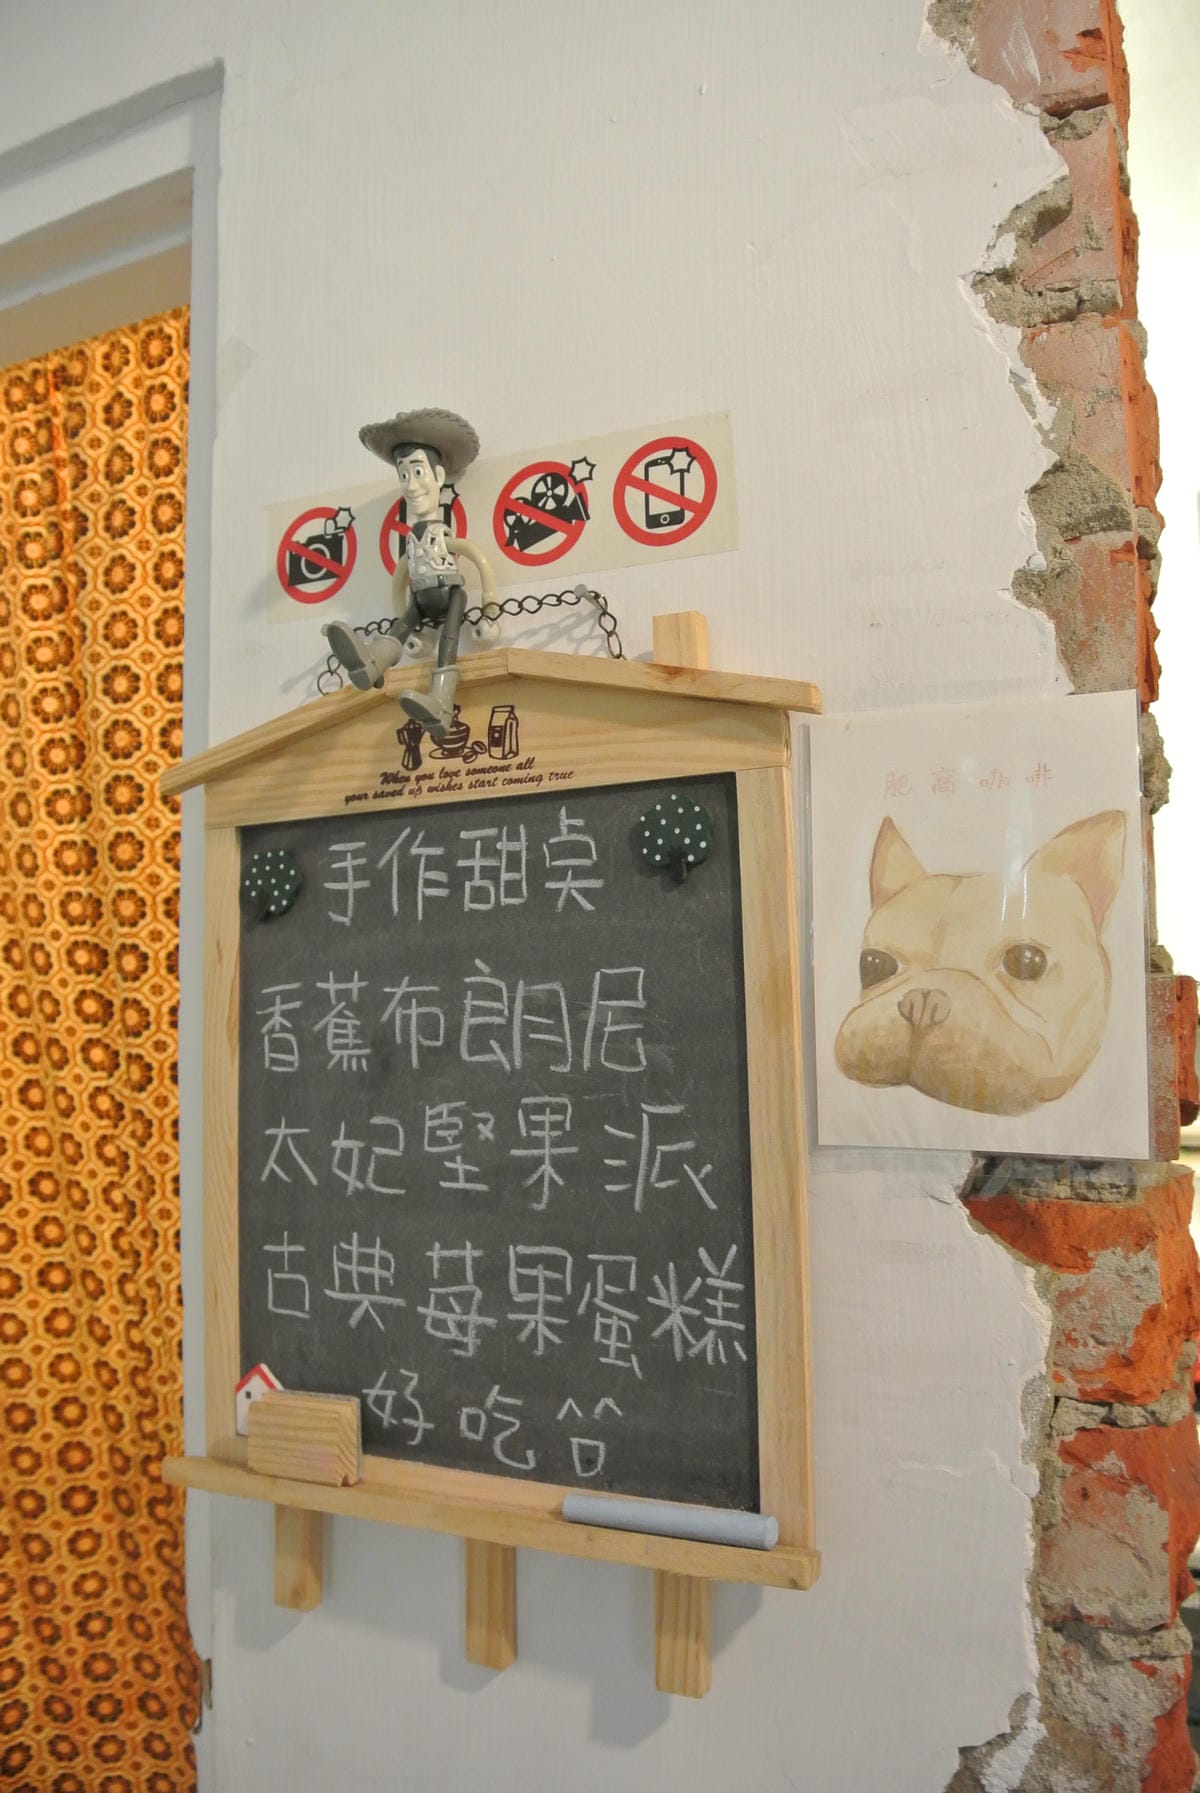 When you love someone all
your saved up wishes start coming true
手作甜点
香蕉布朗尼
太妃堅果派
古典莓果蛋糕
好吃^^
肥窩咖啡